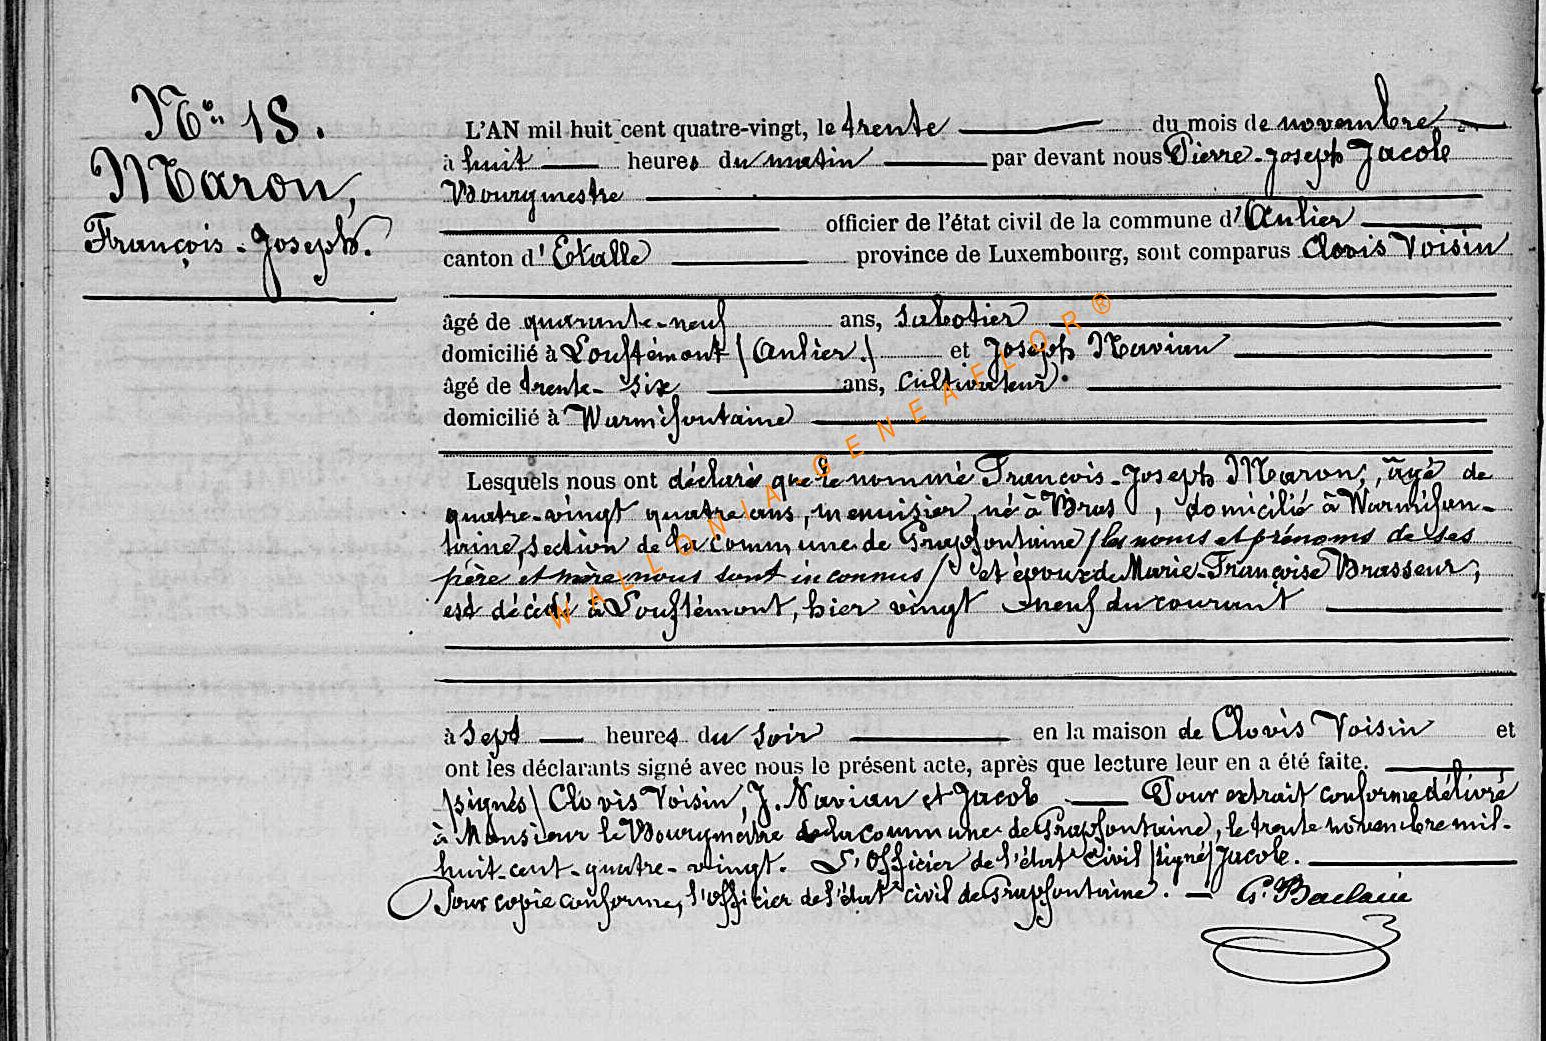 N° 18.
Maron,
François-Joseph.
L'AN mil huit cent quatre-vingt, le trente du mois de novembre
à huit heures du matin par devant nous Pierre-Joseph Jacob
Bourgmestre
officier de l'état civil de la commune d'Anlier
canton d'Etalle province de Luxembourg, sont comparus Clovis Voisin
âgé de quarante-neuf ans, sabotier
domicilié à Louftémont (Anlier.) et Joseph Navian
âgé de trente-six ans, cultivateur.
domicilié à Warmifontaine
Lesquels nous ont déclaré que le nommé François-Joseph Maron, âgé de
quatre-vingt quatre ans, menuisier, né à Bras, domicilié à Warmifon-
taine, section de la commune de Grapfontaine (les noms et prénoms de ses
père et mère nous sont inconnus) et époux de Marie-Françoise Brasseur,
est décédé à Louftémont, hier vingt neuf du courant
à sept heures du soir en la maison de Clovis Voisin et
ont les déclarants signé avec nous le présent acte, après que lecture leur en a été faite.
(signés) Clovis Voisin, J. Navian et Jacob Pour extrait conforme délivré
à Monsieur le Bourgmestre de la commune de Grapfontaine, le trente novembre mil-
huit-cent-quatre-vingt. L'Officier de l'état civil (signé) Jacob.
Pour copie conforme, l'officier de l'état civil de Grapfontaine.
WALLONIA-GENEAFLOR®